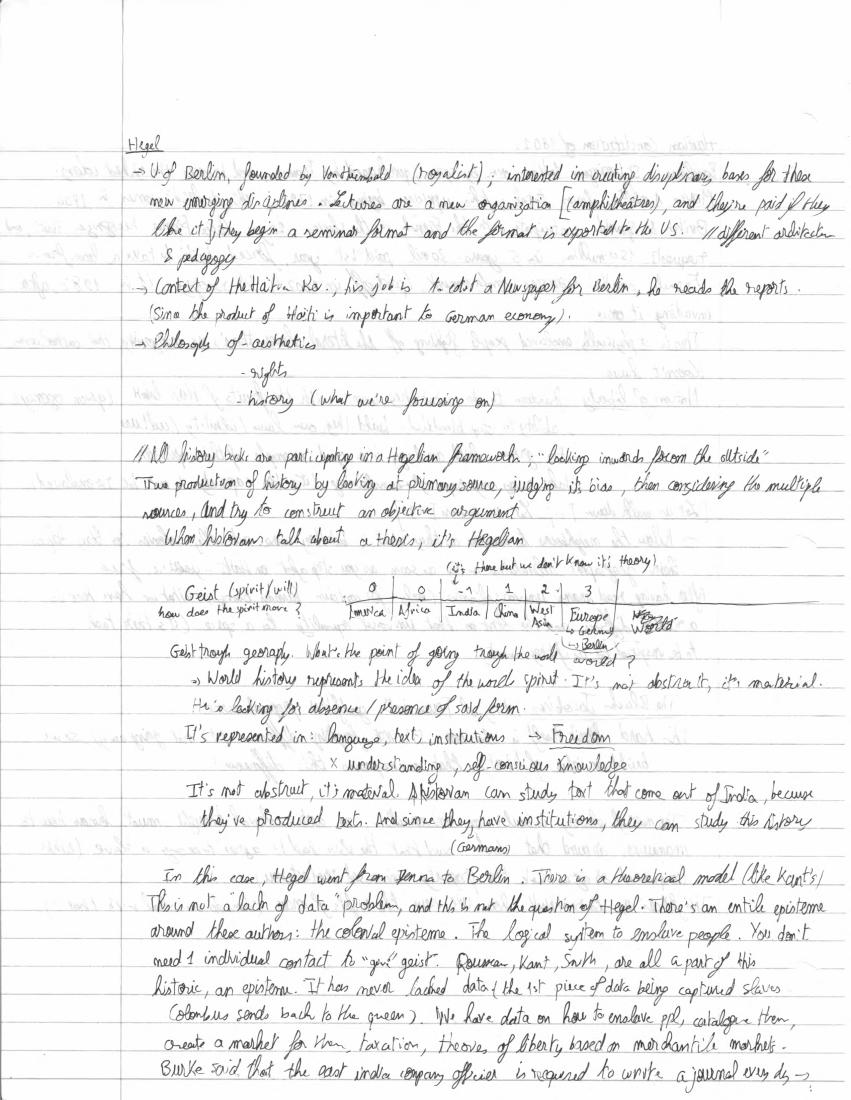 Hegel
→ U. of Berlin, founded by Von Humbold (royalist); interested in creating disciplinary bases for these
new emerging disciplines. Lectures are a new organization [(amphitheatres), and they're paid if they
like it], they begin a seminar format and the format is exported to the US. //different architecture
& pedagogy
→ Context of the Haiti Rev., his job is to edit a Newspaper for Berlin, he reads the reports.
(Since the product of Haiti is important to German economy).
→ Philosophy of - aesthetics
- rights
- history (what we're focusing on)
// All history books are participating in a Hegelian framework; "looking inwards from the outside"
True production of history by looking at primary source, judging its bias, then considering the multiple
sources, and try to construct an objective argument
When historians talk about a thesis, it's Hegelian
(it's there but we don't know it's theory)
Geist (spirit/will) 0 0 -1 1 2 3
how does the spirit move? America | Africa | India | China | West Asia | Europe
→ Germany
→ Berlin
World
Geist trough geography. What's the point of going trough the world world?
→ World history represents the idea of the world spirit. It's not abstract, it's material.
He is looking for absence / presence of said form.
It's represented in: language, text, institutions → Freedom
x understanding, self-conscious knowledge
It's not abstract, it's material. A historian can study text that come out of India, because
they've produced texts. And since they have institutions, they can study this history
(Germans)
In this case, Hegel went from Jenna to Berlin. There is a theoretical model (like Kant's)
This is not a "lach of data" problem, and this is not the question of Hegel. There's an entile episteme
around these authors: the colonial episteme. The logical system to enslave people. You don't
need 1 individual contact to "give" geist. Rousseau, Kant, Smith, are all a part of this
historic, an episteme. It has never lacked data (the 1st piece of data being captured slaves
Colombus sends back to the queen). We have data on how to enslave ppl, catalogue them,
create a market for them, taxation, theories of liberty based on merchantile markets.
Burke said that the east india company officer is required to write a journal every day →